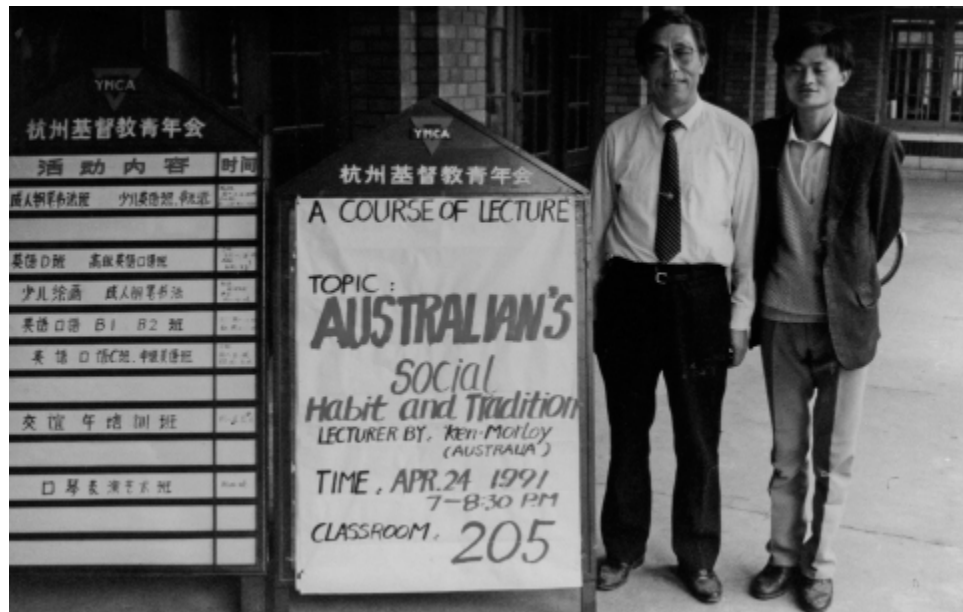 YMCA
杭州基督教青年会
活动内容 时间
成人钢笔书法班 少儿英语班、书法班
英语D班 高级英语口语班
少儿绘画 成人钢笔书法
英语口语 B1 B2 班
英语口语C班、中级英语班
交谊舞培训班
口琴表演艺术班
YMCA
杭州基督教青年会
A COURSE OF LECTURE
TOPIC :
AUSTRALIAN'S
SOCIAL
Habit and Tradition
LECTURER BY, Ken-Morley
(AUSTRALIA)
TIME, APR.24 1991
7-8:30 P.M
CLASSROOM, 205